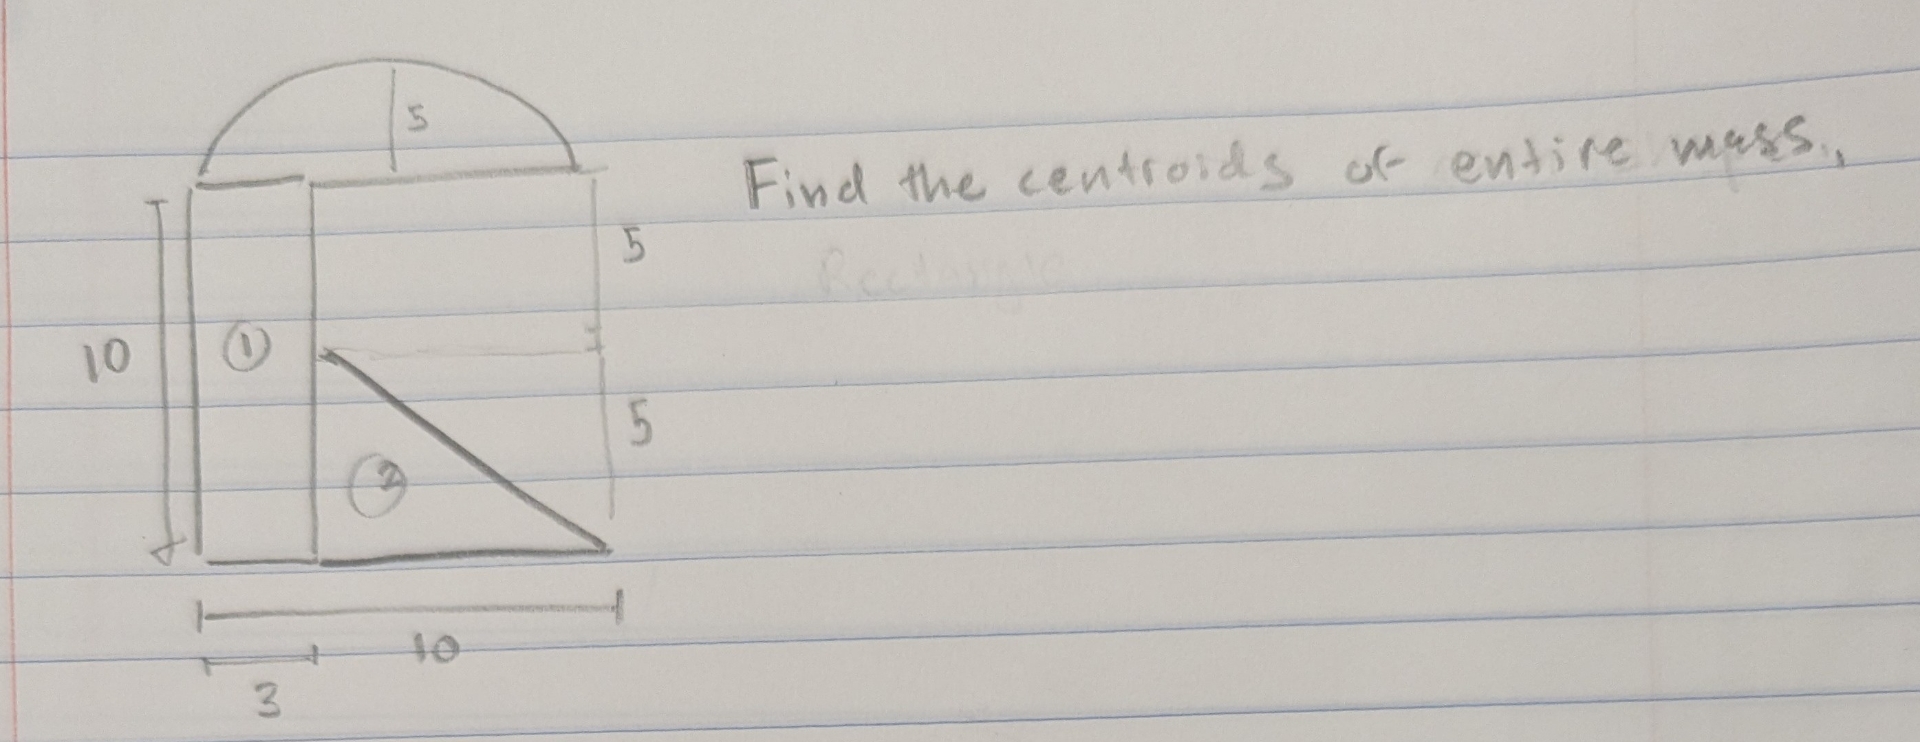 5
Find the centroids of entire mass.
5
Rectangle
10
①
5
②
10
3